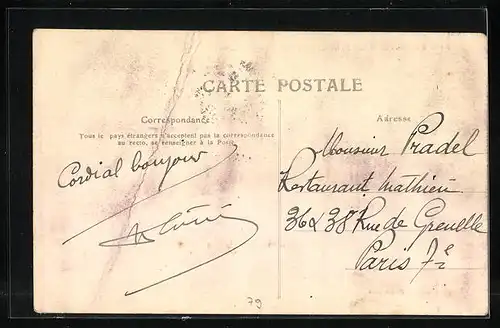 CARTE POSTALE
Correspondance
Tous les pays étrangers n'acceptent pas la correspondance
au recto, se renseigner à la Poste
Cordial bonjour
Adresse
Monsieur Pradel
Restaurant Mathieu
36 & 38 Rue de Grenelle
Paris 7e
79